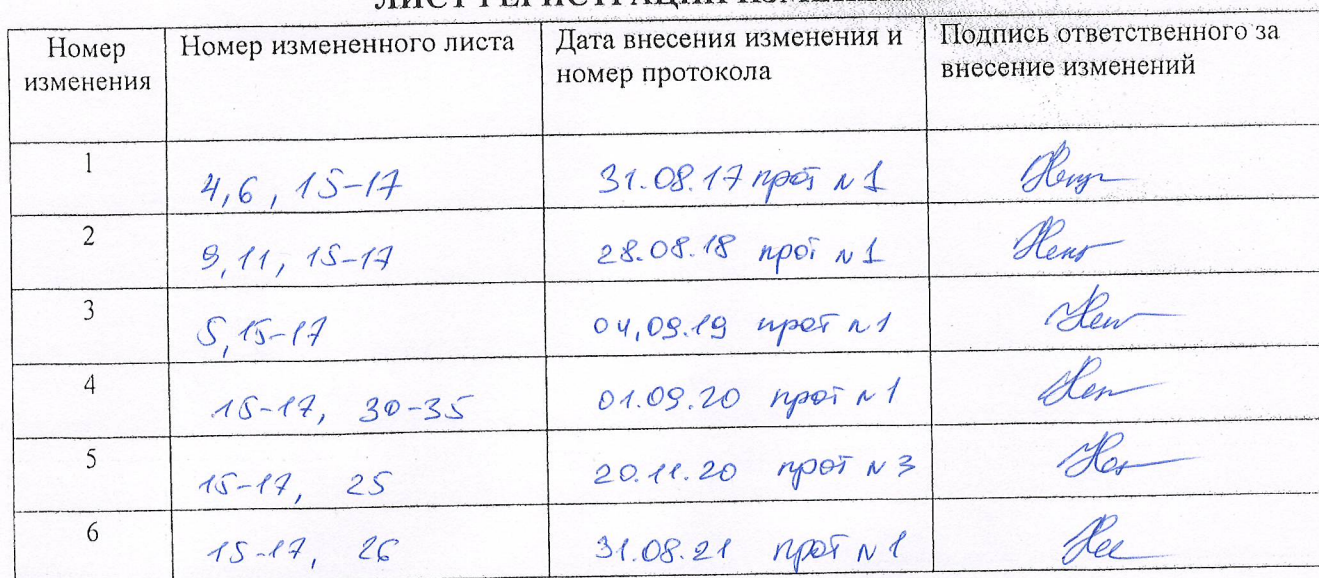 ЛИСТ РЕГИСТРАЦИИ ИЗМЕНЕНИЙ
Номер изменения
Номер измененного листа
Дата внесения изменения и номер протокола
Подпись ответственного за внесение изменений
1
4,6, 15-17
31.08.17 прот N 1
2
9,11, 15-17
28.08.18 прот N 1
3
5,15-17
04,09.19 прот N 1
4
15-17, 30-35
01.09.20 прот N 1
5
15-17, 25
20.11.20 прот N 3
6
15-17, 26
31.08.21 прот N 1